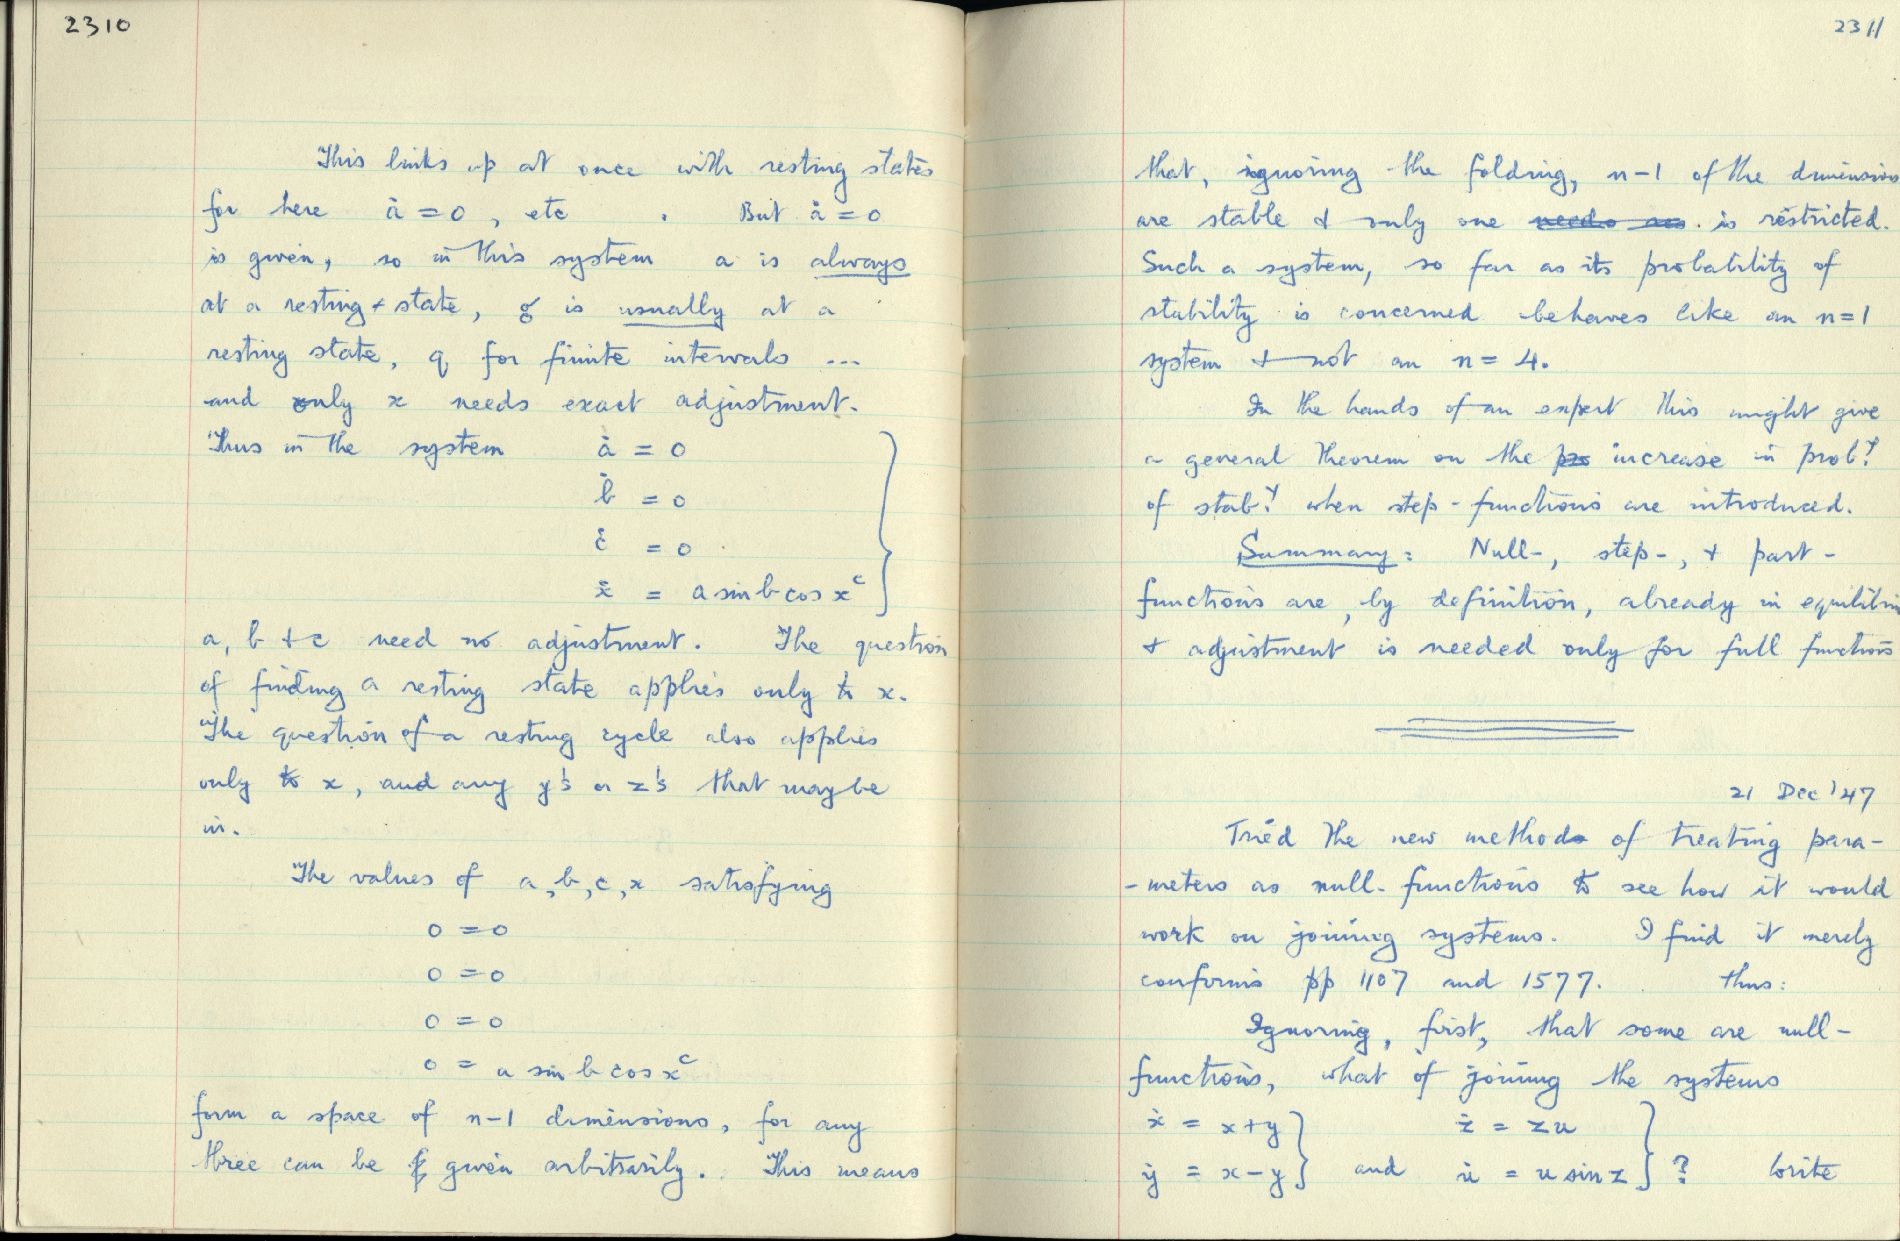 2310
This links up at once with resting states
for here ȧ = 0, etc. But ȧ = 0
is given, so in this system a is always
at a resting state, g is usually at a
resting state, q for finite intervals ...
and only x needs exact adjustment.
Thus in the system ȧ = 0
ḃ = 0
ċ = 0
ẋ = a sin b cos xᶜ
a, b + c need no adjustment. The question
of finding a resting state applies only to x.
The question of a resting cycle also applies
only to x, and any y's or z's that may be
in.
The values of a, b, c, x satisfying
0 = 0
0 = 0
0 = 0
0 = a sin b cos xᶜ
form a space of n-1 dimensions, for any
three can be given arbitrarily. This means
2311
that, ignoring the folding, n-1 of the dimensions
are stable + only one is restricted.
Such a system, so far as its probability of
stability is concerned behaves like an n=1
system + not an n = 4.
In the hands of an expert this might give
a general theorem on the increase in prob.ʸ
of stab.ʸ when step-functions are introduced.
Summary: Null-, step-, + part-
functions are, by definition, already in equilibrium
+ adjustment is needed only for full functions
21 Dec '47
Tried the new method of treating para-
-meters as null-functions to see how it would
work on joining systems. I find it merely
confirms pp 1107 and 1577. thus:
Ignoring, first, that some are null-
functions, what of joining the systems
ẋ = x+y } ż = zu }
ẏ = x-y } and u̇ = u sin z } ? Write